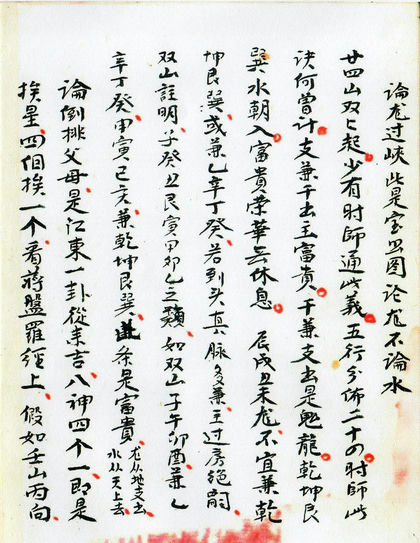 论龙过峡此是宝照图论龙不论水
廿四山双双起少有时师通此义五行分佈二十四时师此
诀何曾计支兼干出主富贵干兼支出是鬼龙乾坤艮
巽水朝入富贵荣华无休息 辰戌丑未龙不宜兼乾
坤艮巽或兼乙辛丁癸若到头真脉多兼主过房绝嗣
双山註明子癸丑艮寅甲卯乙之类如双山子午卯酉兼乙
辛丁癸甲寅巳亥兼乾坤艮巽 条是富贵 龙从地支去水从天上去
论倒排父母是江东一卦從来吉八神四个一即是
挨星四個挨一个看蒋盤羅經上 假如壬山丙向